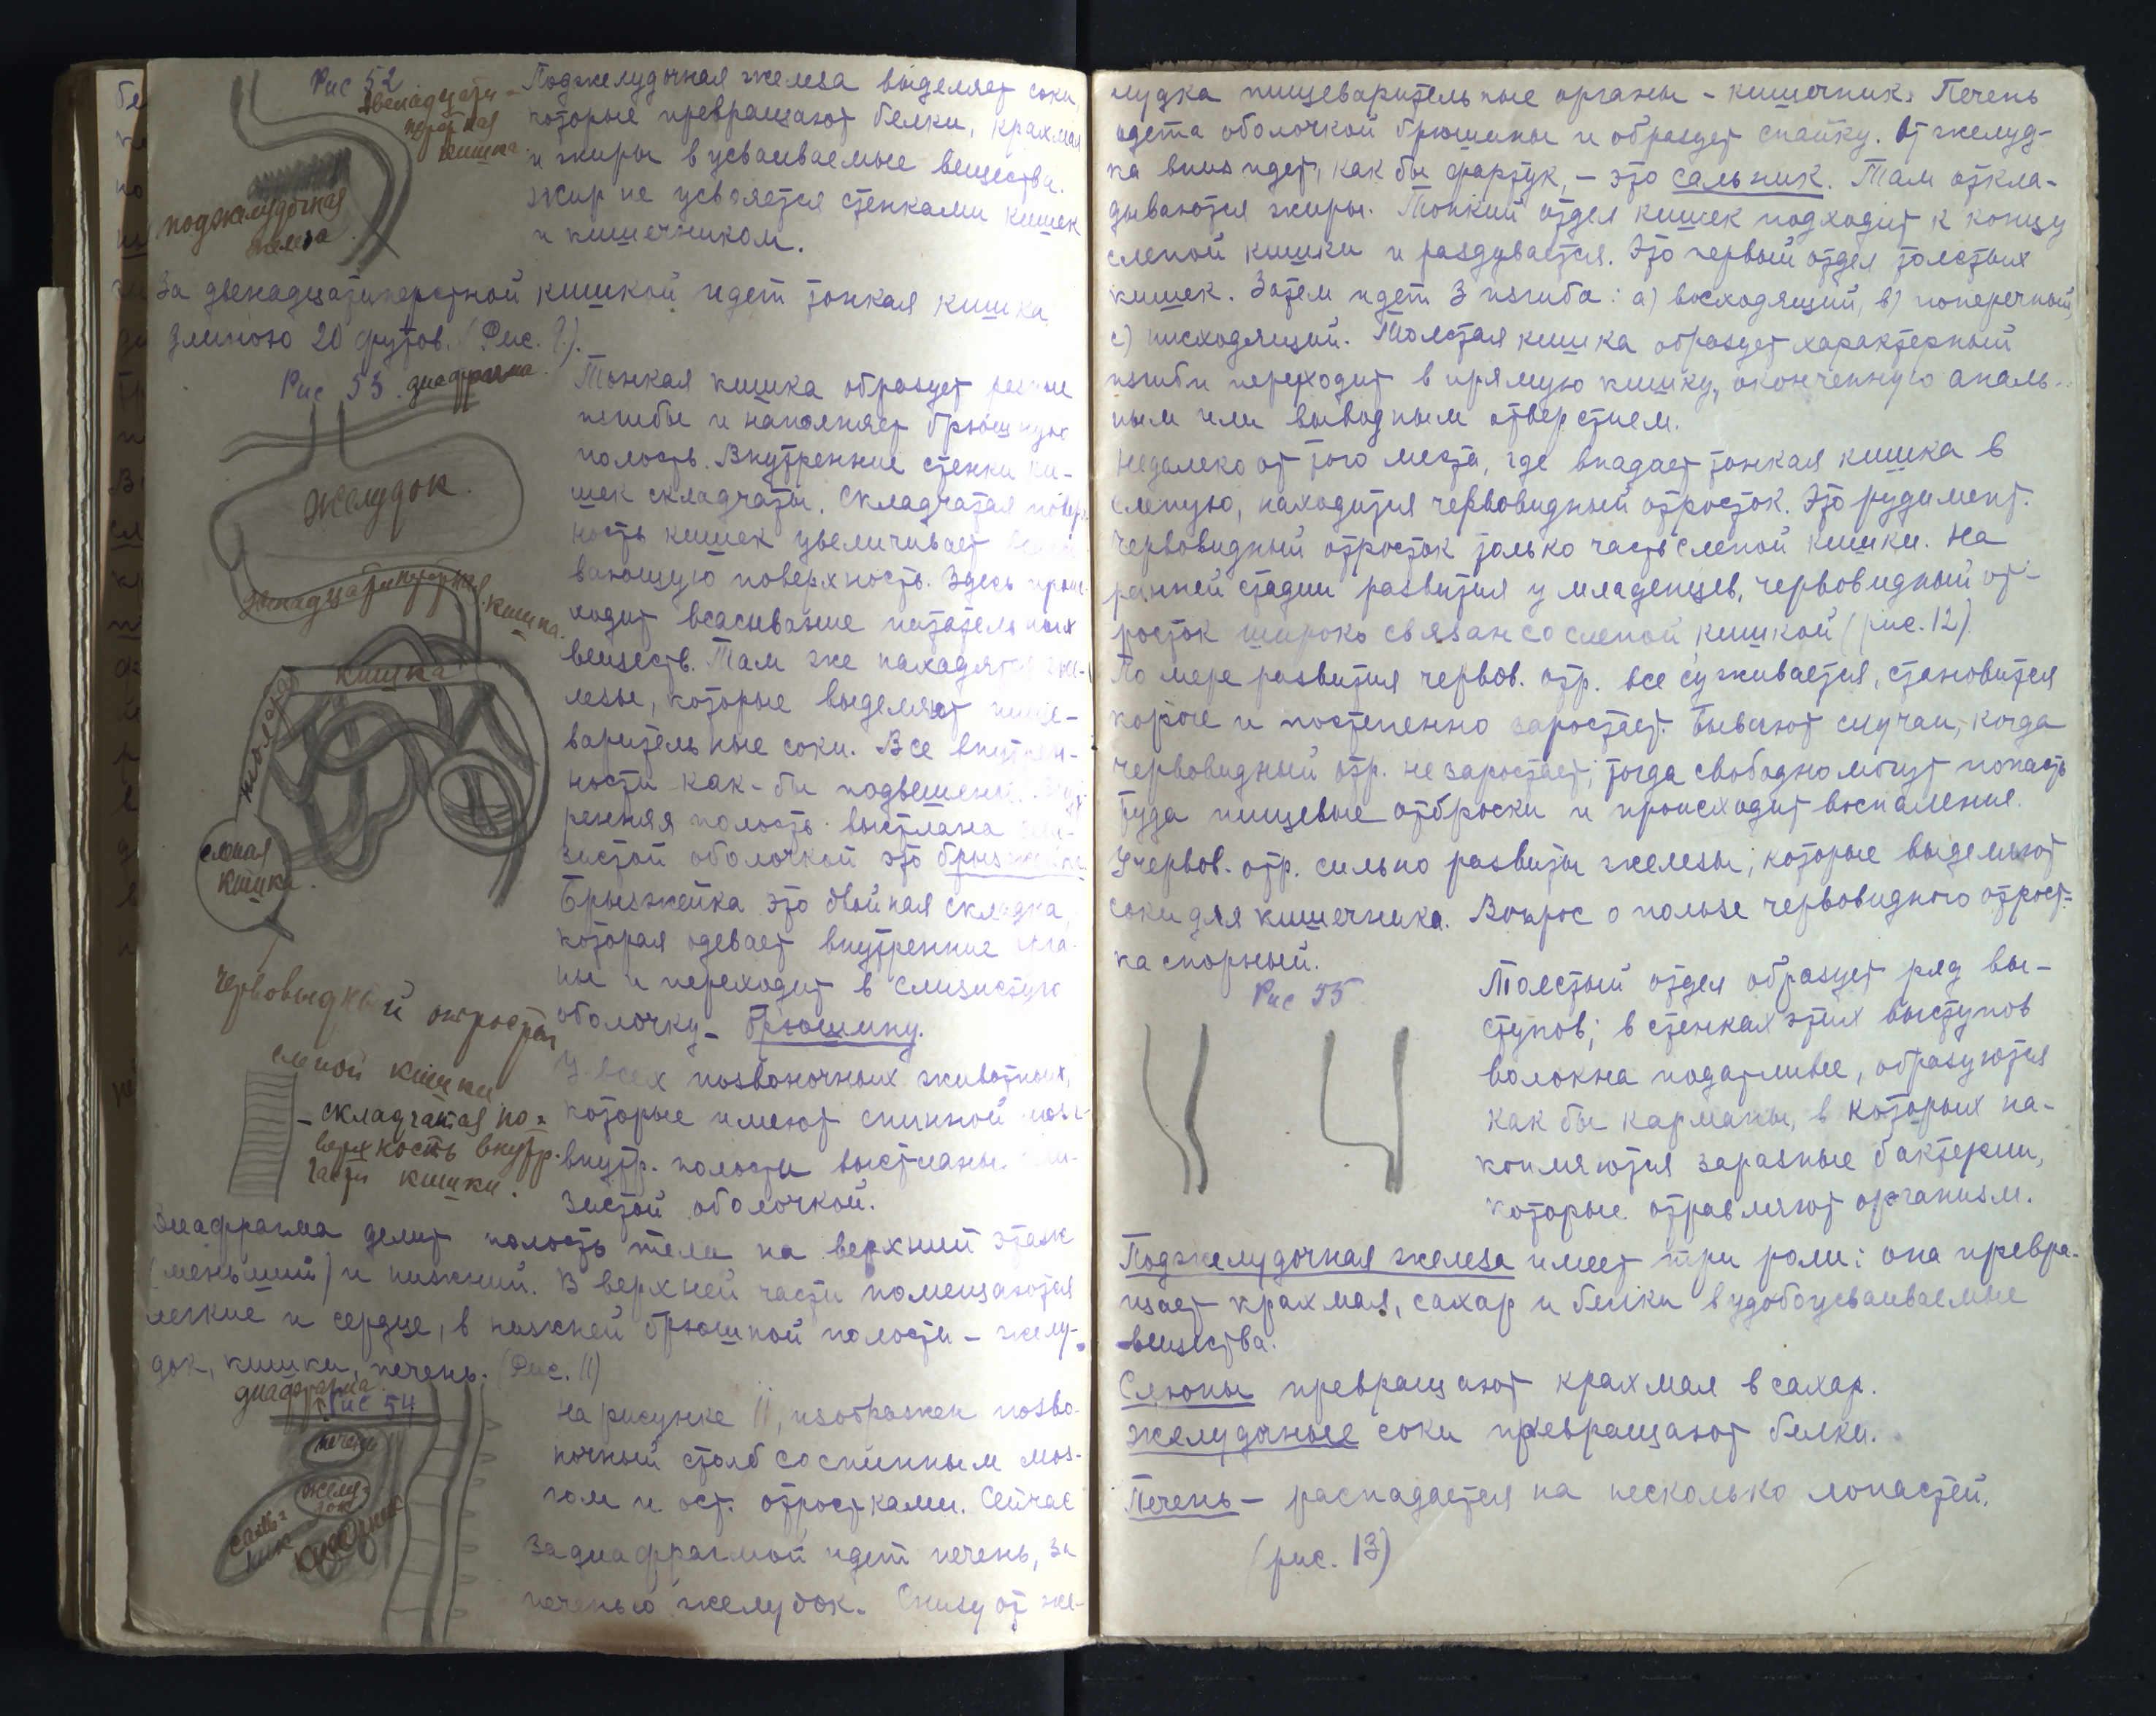 Рис 52
двенадцати-
перстная
кишка.
поджелудочная
железа.
Поджелудочная железа выделяет соки,
которые превращают белки, крахмал
и жиры в усваиваемые вещества.
Жир не усвояется стенками кишек
и кишечником.
За двенадцатиперстной кишкой идет тонкая кишка
длиною 20 футов. (Рис. 9).
Рис 53. диафрагма.
Желудок.
двенадцатиперстная кишка.
кишка
толстая
слепая
кишка.
червовидный отросток
слепой кишки
- складчатая по-
верхность внутр.
части кишки.
Тонкая кишка образует разные
изгибы и наполняет брюшную
полость. Внутренние стенки ки-
шек складчаты. Складчатая поверх-
ность кишек увеличивает всасы-
вающую поверхность. Здесь проис-
ходит всасывание питательных
веществ. Там же находятся же-
лезы, которые выделяют пище-
варительные соки. Все внутрен-
ности как-бы подвешены. Внут-
ренняя полость выстлана сли-
зистой оболочкой это брызжейка.
Брызжейка это двойная складка,
которая одевает внутренние орга-
ны и переходит в слизистую
оболочку - брюшину.
У всех позвоночных животных,
которые имеют спинной мозг
внутр. полости выстланы сли-
зистой оболочкой.
Диафрагма делит полость тела на верхний этаж
(меньший) и нижний. В верхней части помещаются
легкие и сердце, в нижней брюшной полости - желу-
док, кишки, печень. (Рис. 11)
диафрагма
Рис 54
печень
желу-
док
саль-
ник
кишечник
На рисунке 11, изображен позво-
ночный столб со спинным моз-
гом и ост. отростками. Сейчас
за диафрагмой идет печень, за
печенью желудок. Снизу от же-
лудка пищеварительные органы - кишечник. Печень
одета оболочкой брюшины и образует спайку. От желуд-
ка вниз идет, как бы фартук, - это сальник. Там откла-
дываются жиры. Тонкий отдел кишек подходит к концу
слепой кишки и раздувается. Это первый отдел толстых
кишек. Затем идет 3 изгиба: а) восходящий, в) поперечный,
с) нисходящий. Толстая кишка образует характерный
изгиб и переходит в прямую кишку, оконченную аналь-
ным или выводным отверстием.
Недалеко от того места, где впадает тонкая кишка в
слепую, находится червовидный отросток. Это рудимент.
Червовидный отросток только часть слепой кишки. На
ранней стадии развития у младенцев, червовидный от-
росток широко связан со слепой кишкой (рис. 12).
По мере развития червов. отр. все суживается, становится
короче и постепенно заростает. Бывают случаи, когда
червовидный отр. не заростает; тогда свободно могут попасть
туда пищевые отброски и происходит воспаление.
У червов. отр. сильно развиты железы, которые выделяют
соки для кишечника. Вопрос о пользе червовидного отрост-
ка спорный.
Рис 55
Толстый отдел образует ряд вы-
ступов; в стенках этих выступов
волокна податливее, образуются
как бы карманы, в которых на-
копляются заразные бактерии,
которые отравляют организм.
Поджелудочная железа имеет три роли: она превра-
щает крахмал, сахар и белки в удобоусваиваемые
вещества.
Слюны превращают крахмал в сахар.
Желудочные соки превращают белки.
Печень - распадается на несколько лопастей.
(рис. 13)